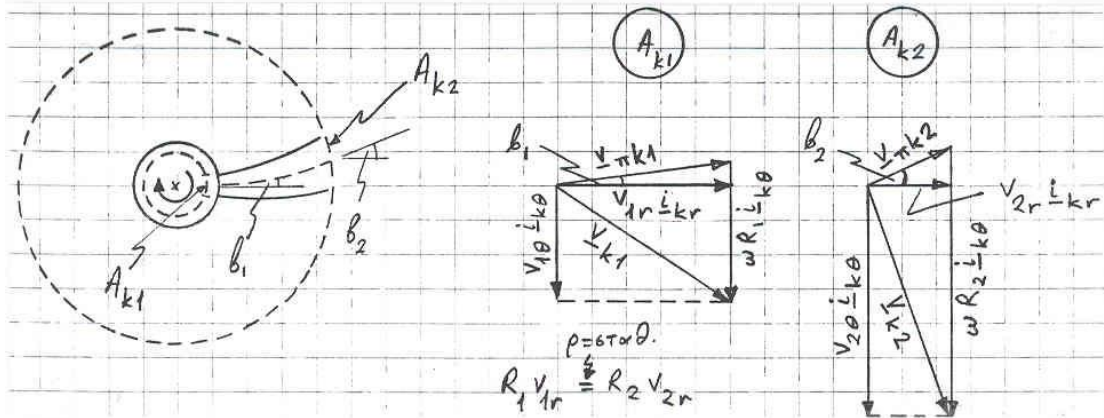 A_k2
b_1
b_2
A_k1
A_k1
b_1
v_πk1
v_1r i_kr
v_1θ i_kθ
v_k1
ωR_1 i_kθ
ρ=σταθ.
R_1 v_1r = R_2 v_2r
A_k2
b_2
v_πk2
v_2r i_kr
v_2θ i_kθ
ωR_2 i_kθ